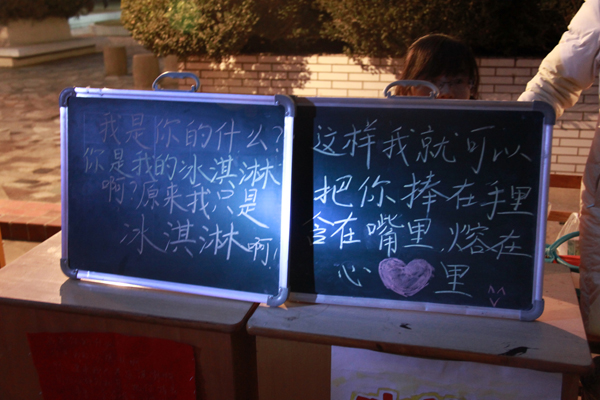 我是你的什么?
你是我的冰淇淋
啊?原来我只是
冰淇淋啊!
这样我就可以
把你捧在手里
含在嘴里.熔在
心里